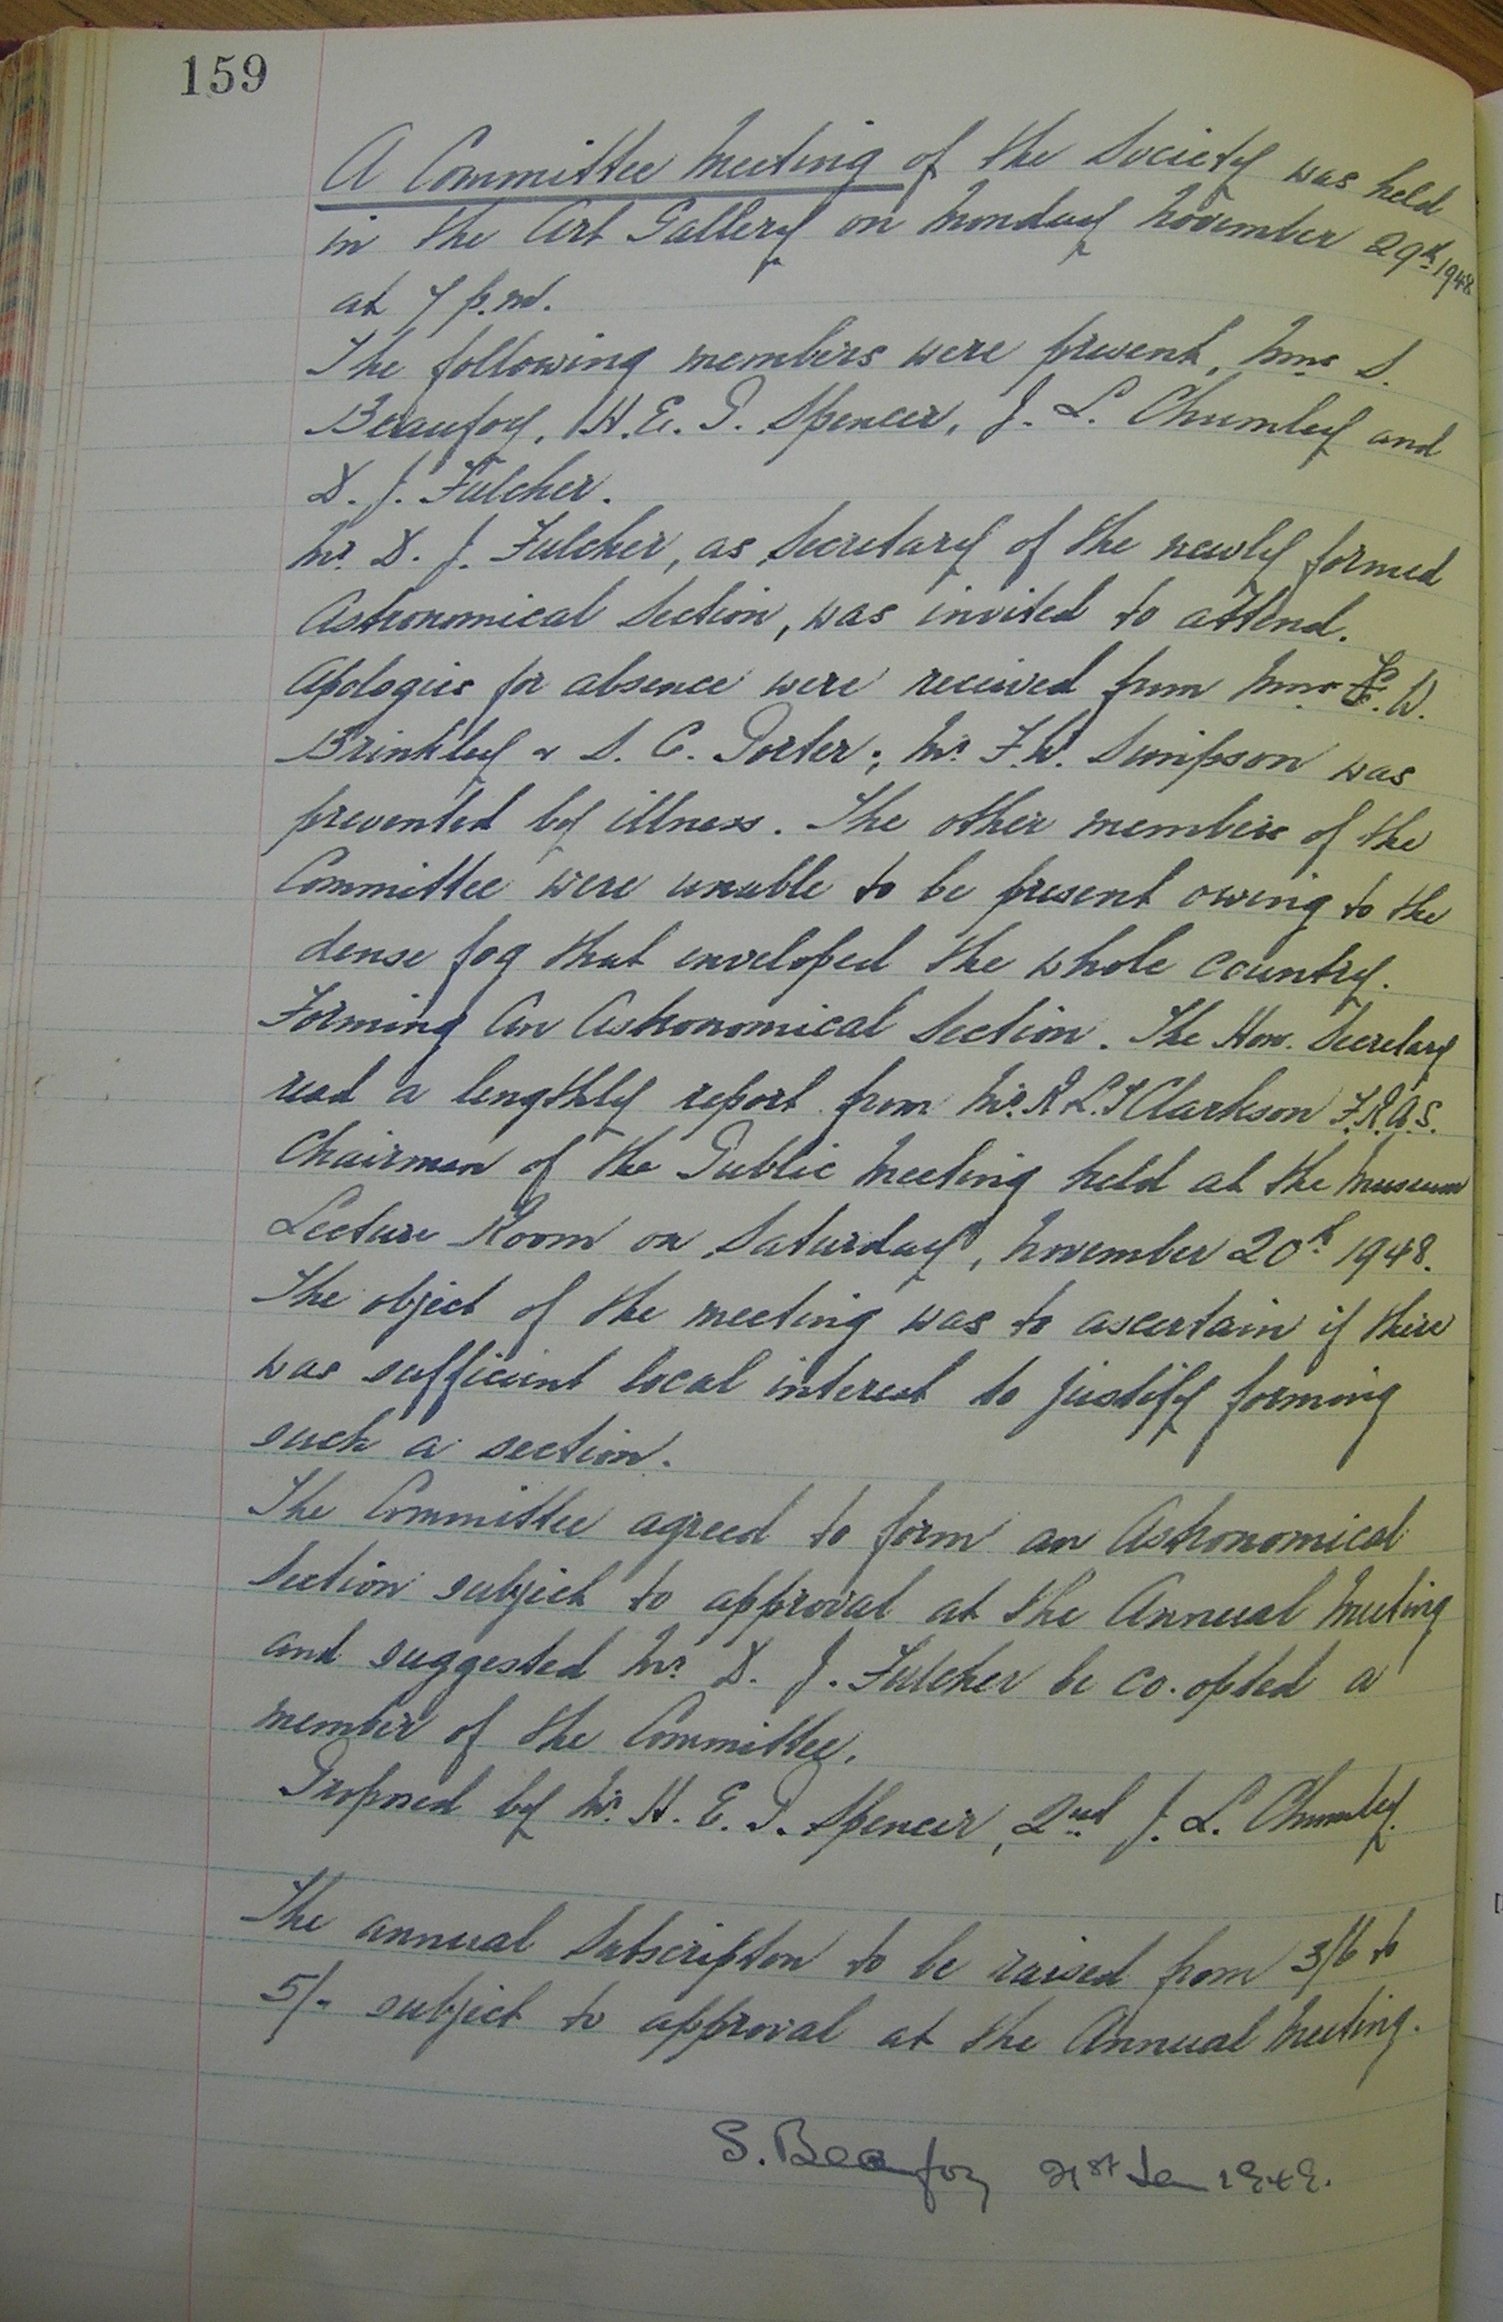 159
A Committee Meeting of the Society was held
in the Art Gallery on Monday November 29th 1948
at 7 p.m.
The following members were present, Mrs S.
Beaufoy, H. E. P. Spencer, J. L. Chumley and
D. J. Fulcher.
Mr. D. J. Fulcher, as Secretary of the newly formed
Astronomical Section, was invited to attend.
Apologies for absence were received from W.
Brinkley & S. C. Porter; Mr. F. W. Simpson was
prevented by illness. The other members of the
Committee were unable to be present owing to the
dense fog that enveloped the whole country.
Forming An Astronomical Section. The Hon. Secretary
read a lengthly report from Mr. R L. T Clarkson F.R.A.S.
Chairman of the Public Meeting held at the Museum
Lecture Room on Saturday, November 20th 1948.
The object of the meeting was to ascertain if there
was sufficient local interest to justify forming
such a section.
The Committee agreed to form an Astronomical
Section subject to approval at the Annual Meeting
and suggested Mr. D. J. Fulcher be co.opted a
member of the Committee.
Proposed by Mr. H. E. P. Spencer, 2nd J. L. Chumley.
The annual Subscription to be raised from 3/6 to
5/- subject to approval at the Annual Meeting.
S. Beaufoy 21st Jan 1949.